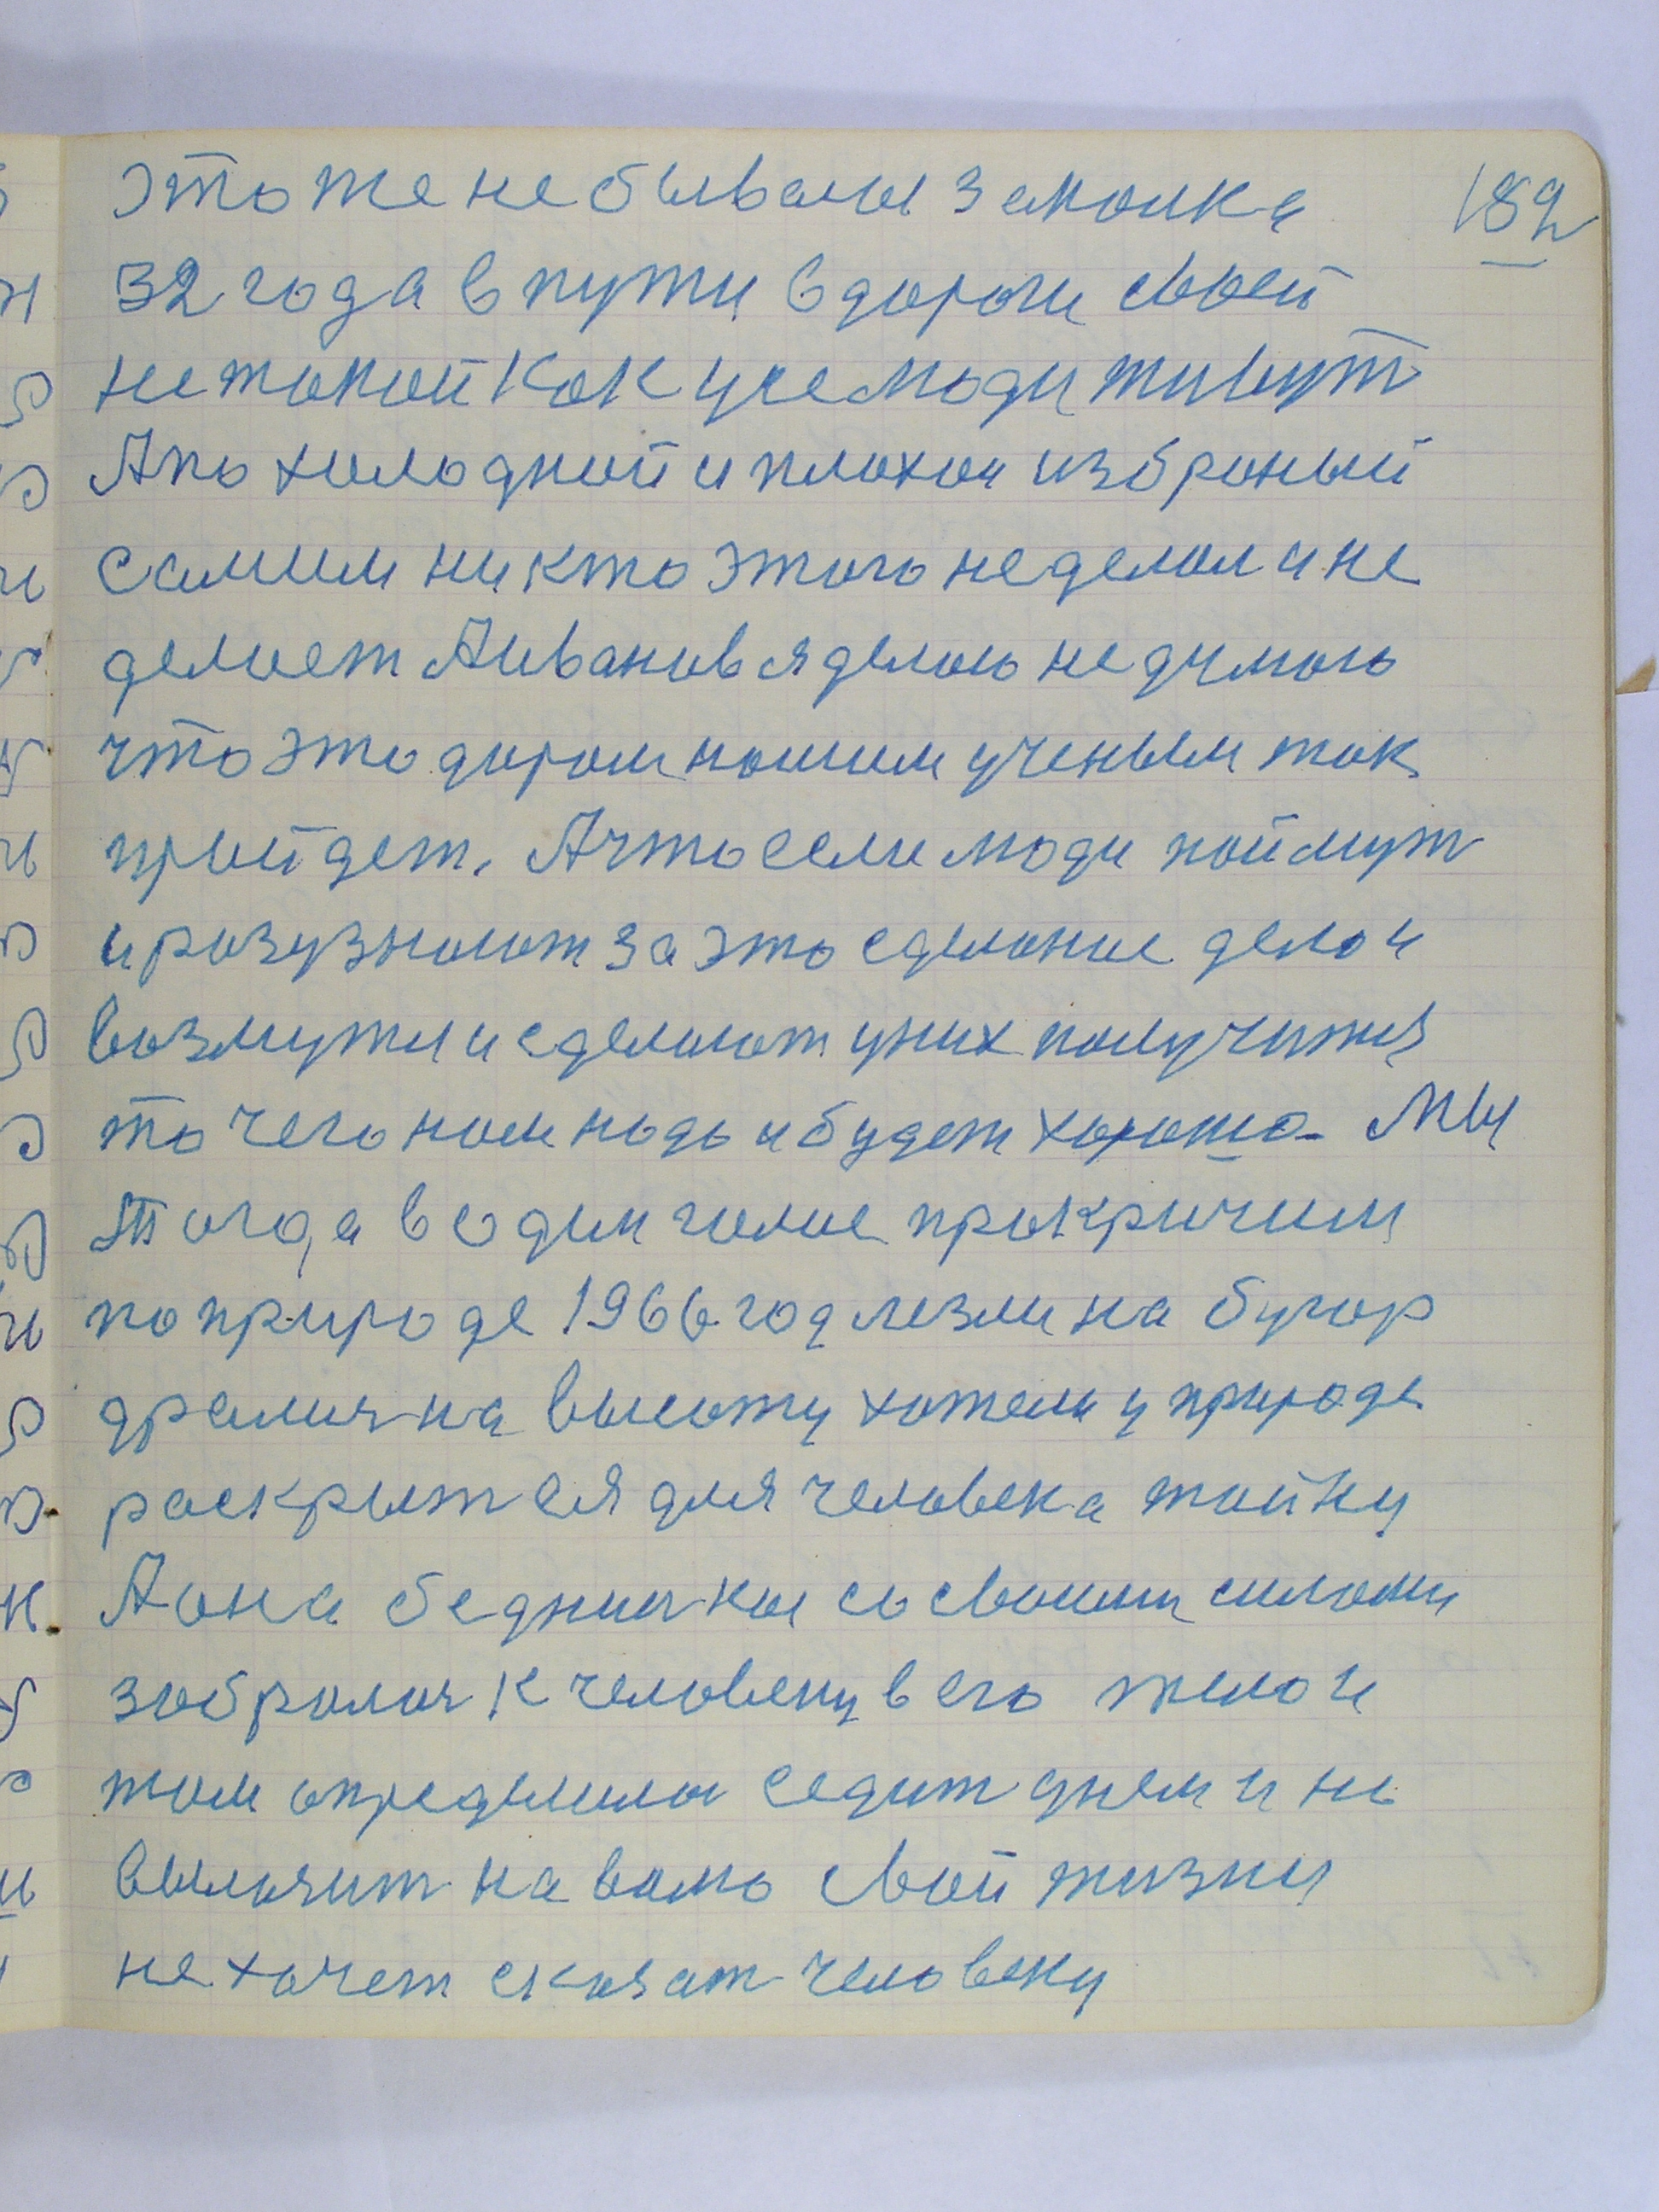 это же не бывалая закалка
189
32 года в пути в дороги своей
не такой как усе люди живут
А по холодной и плохой избраный
самим никто этого не делал и не
делает А Иванов я делаю не думаю
что это даром нашим ученым так
прыйдет. А что если люди поймут
и разузнают за это сделаное дело и
возмутся и сделают у них получится
то чего нам надо и будет хорошо. Мы
Тогда в один голос прокричим
по природе 1966 год лезли на бугор
дрались на высоту хотели у природе
раскрытся для человека тайну
А она бедняжка со своими силами
забралась к человеку в его тело и
там определилась седит днем и не
вылазит на волю свой жизни
не хочет сказат человеку